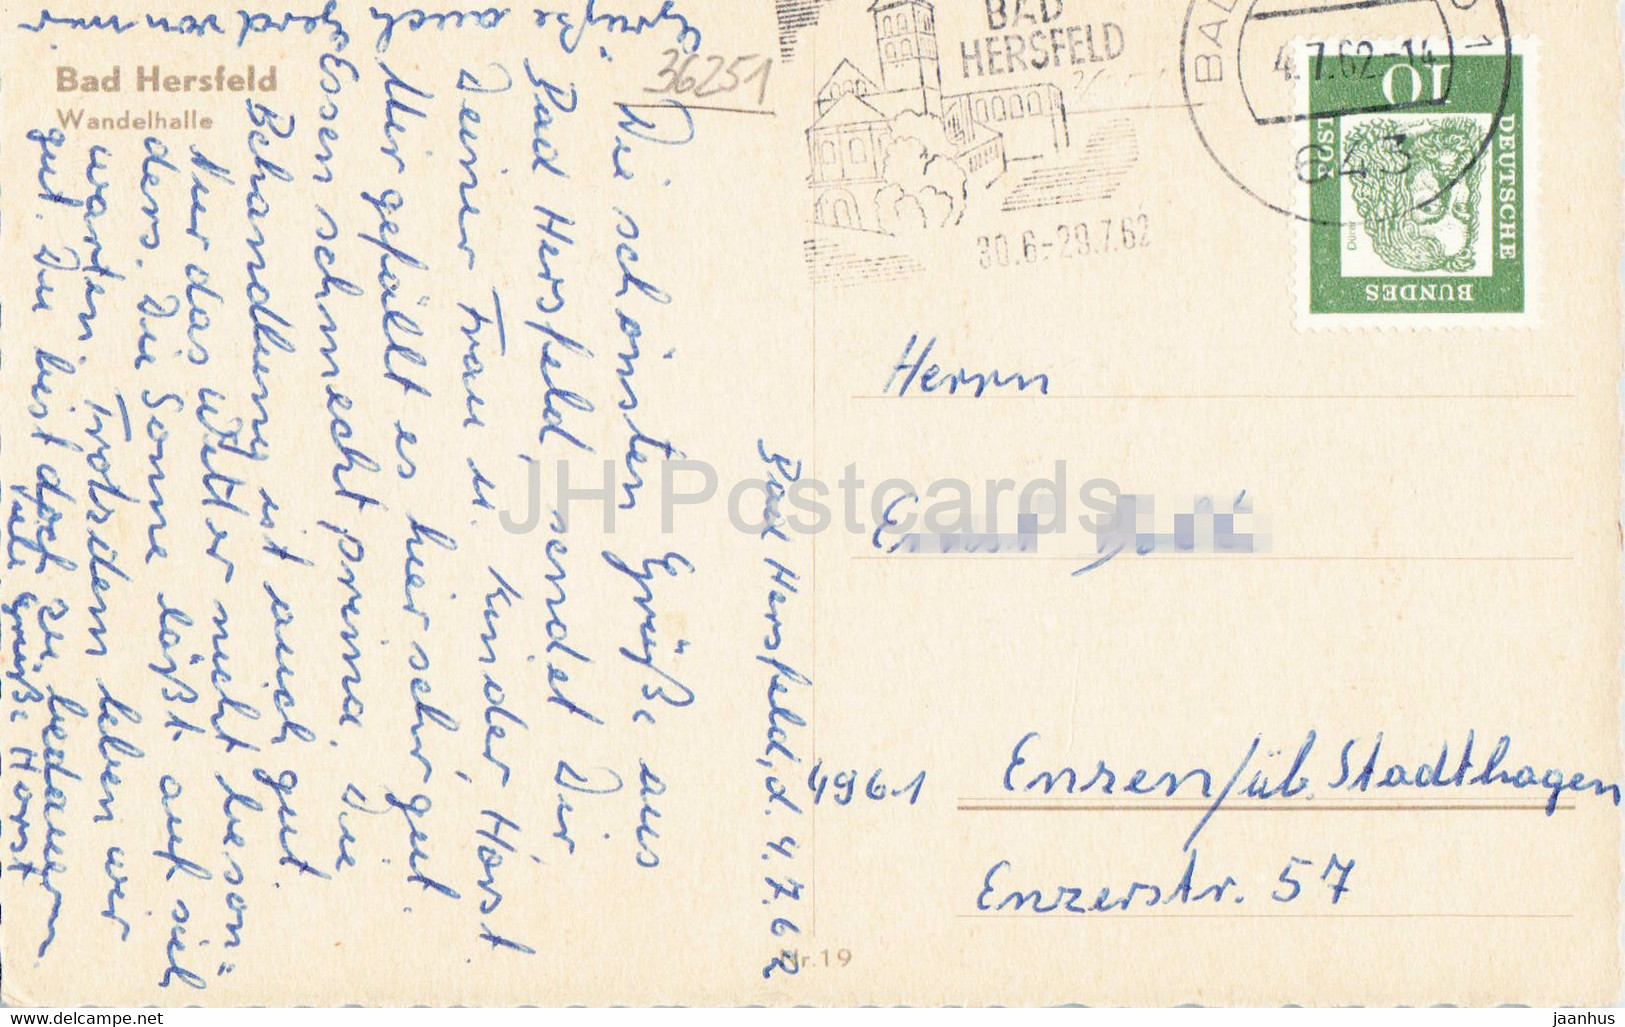 Bad Hersfeld
Wandelhalle
36251
BAD
HERSFELD
30.6.-29.7.62
4.7.62-14
643
10
DEUTSCHE
BUNDES
Dürer
Bad Hersfeld, d. 4.7.62
Die schönsten Grüße aus
Bad Hersfeld, sendet Dir
Deiner Frau u. Kinder, Horst
Mir gefällt es hier sehr gut.
Essen schmeckt prima. Die
Behandlung ist auch gut.
Nur das Wetter nicht beson=
ders. Die Sonne läßt auf sich
warten. Trotzdem leben wir
gut. Du bist doch zu bedauern
Viele Grüße Horst
Grüße auch
Gerd von mir.
Herrn
4961 Enzen/üb. Stadthagen
Enzerstr. 57
Nr. 19
JH Postcards
www.delcampe.net
jaanhus